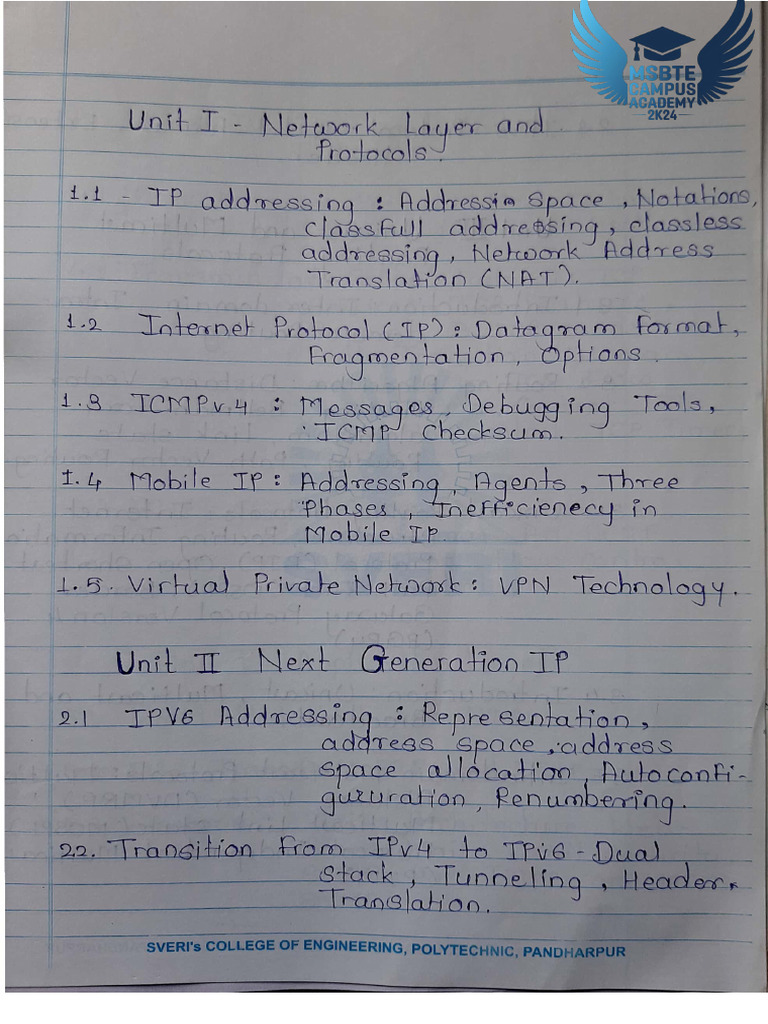 MSBTE
CAMPUS
ACADEMY
2K24
Unit I - Network Layer and
Protocols.
1.1 - IP addressing : Addressin space, Notations,
classfull addressing, classless
addressing, Network Address
Translation (NAT).
1.2 Internet Protocol (IP) : Datagram Format,
Fragmentation, Options.
1.3 ICMPv.4 : Messages, Debugging Tools,
ICMP checksum.
1.4 Mobile IP : Addressing, Agents, Three
Phases, Inefficienecy in
Mobile IP.
1.5. Virtual Private Network : VPN Technology.
Unit II Next Generation IP
2.1 IPV6 Addressing : Representation,
address space, address
space allocation, Autoconfi-
gururation, Renumbering.
22. Transition from IPv4 to IPv6 - Dual
stack, Tunneling, Header
Translation.
SVERI's COLLEGE OF ENGINEERING, POLYTECHNIC, PANDHARPUR